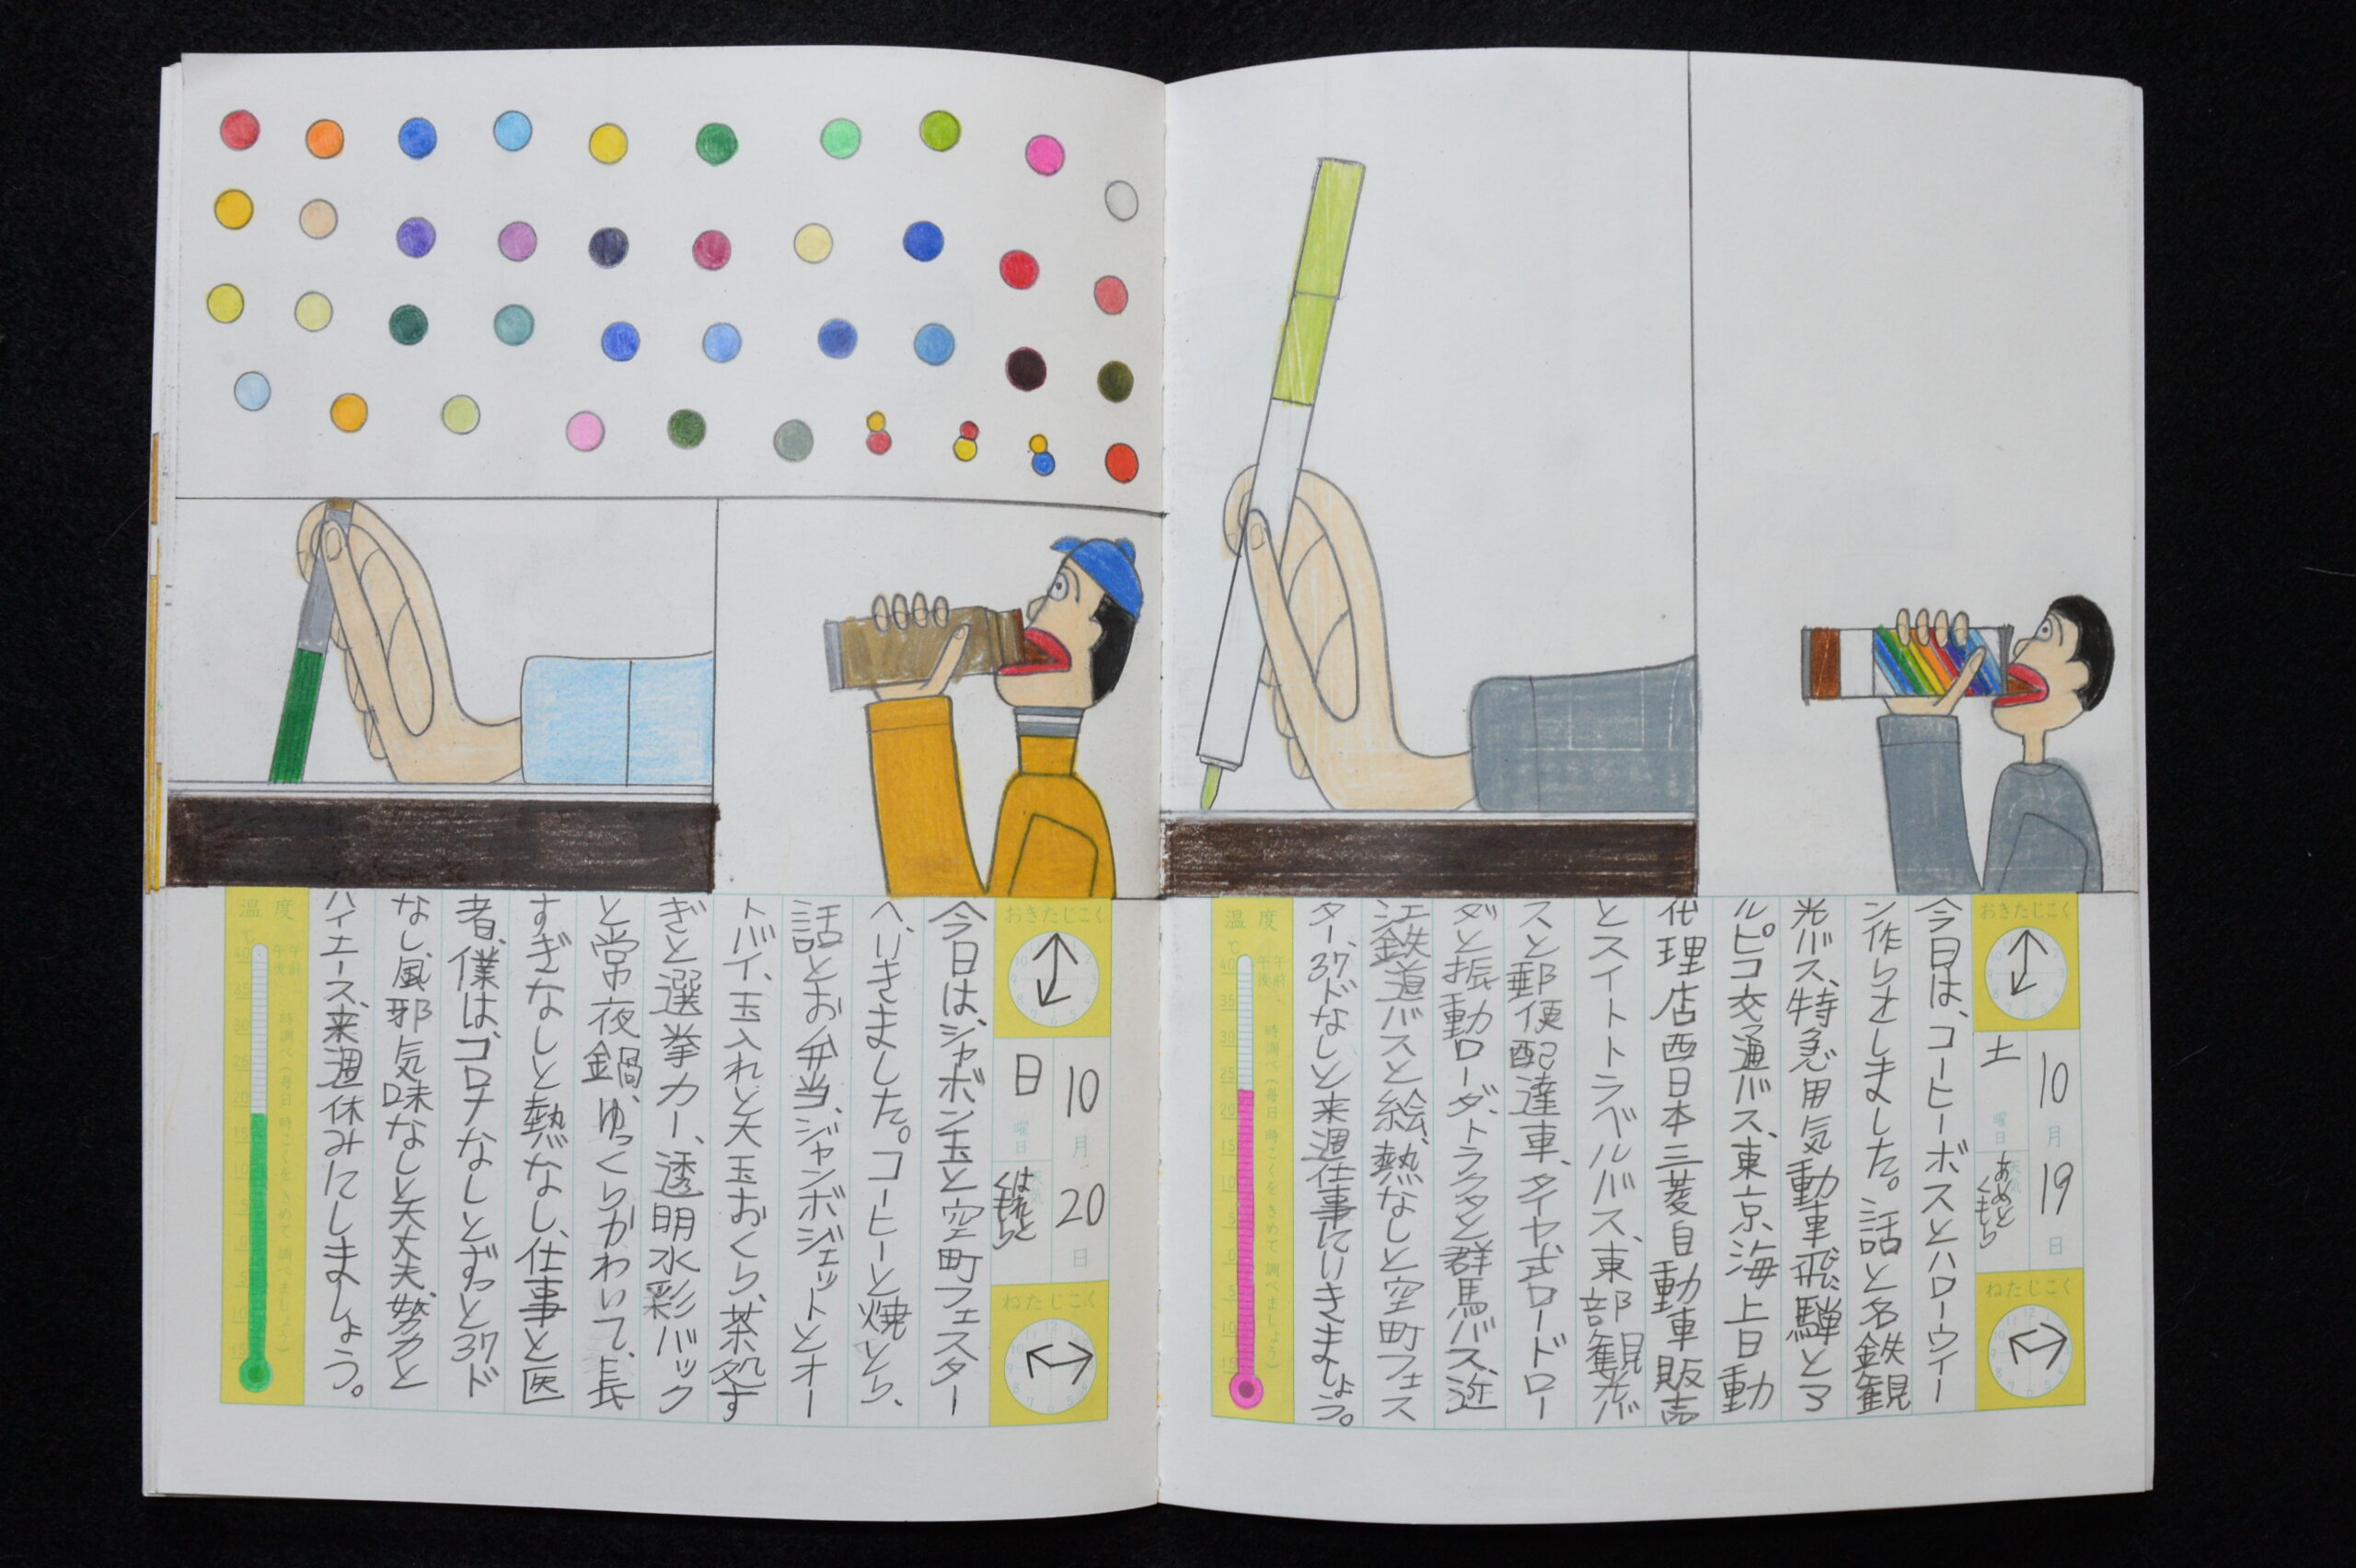 おきたじこく
10月19日
土曜日
あめとくもり
ねたじこく
今日は、コーヒーボスとハローウィー
ン作りをしました。話と名鉄観
光バス、特急用気動車飛騨とア
ルピコ交通バス、東京海上日動
代理店西日本三菱自動車販売
とスイトトラベルバス、東部観光バ
スと郵便配達車、タイヤ式ロードロー
ダと振動ローダ、トラクタと群馬バス、近
江鉄道バスと絵、熱なしと空町フェス
ター、37ドなしと来週仕事にいきましょう。
温度
℃
午前
午後
時調べ(毎日 時こくをきめて調べましょう)
おきたじこく
10月20日
日曜日
はれとくもり
ねたじこく
今日は、シャボン玉と空町フェスター
へ、いきました。コーヒーと焼とり、
話とお弁当、ジャンボジェットとオー
トバイ、玉入れと大玉おくり、茶処す
ぎと選挙カー、透明水彩バック
と常夜鍋、ゆっくりかわいて、長
すぎなしと熱なし、仕事と医
者、僕は、コロナなしとずっと37ド
なし、風邪気味なしと大丈夫、努力と
ハイエース、来週休みにしましょう。
温度
℃
午前
午後
時調べ(毎日 時こくをきめて調べましょう)